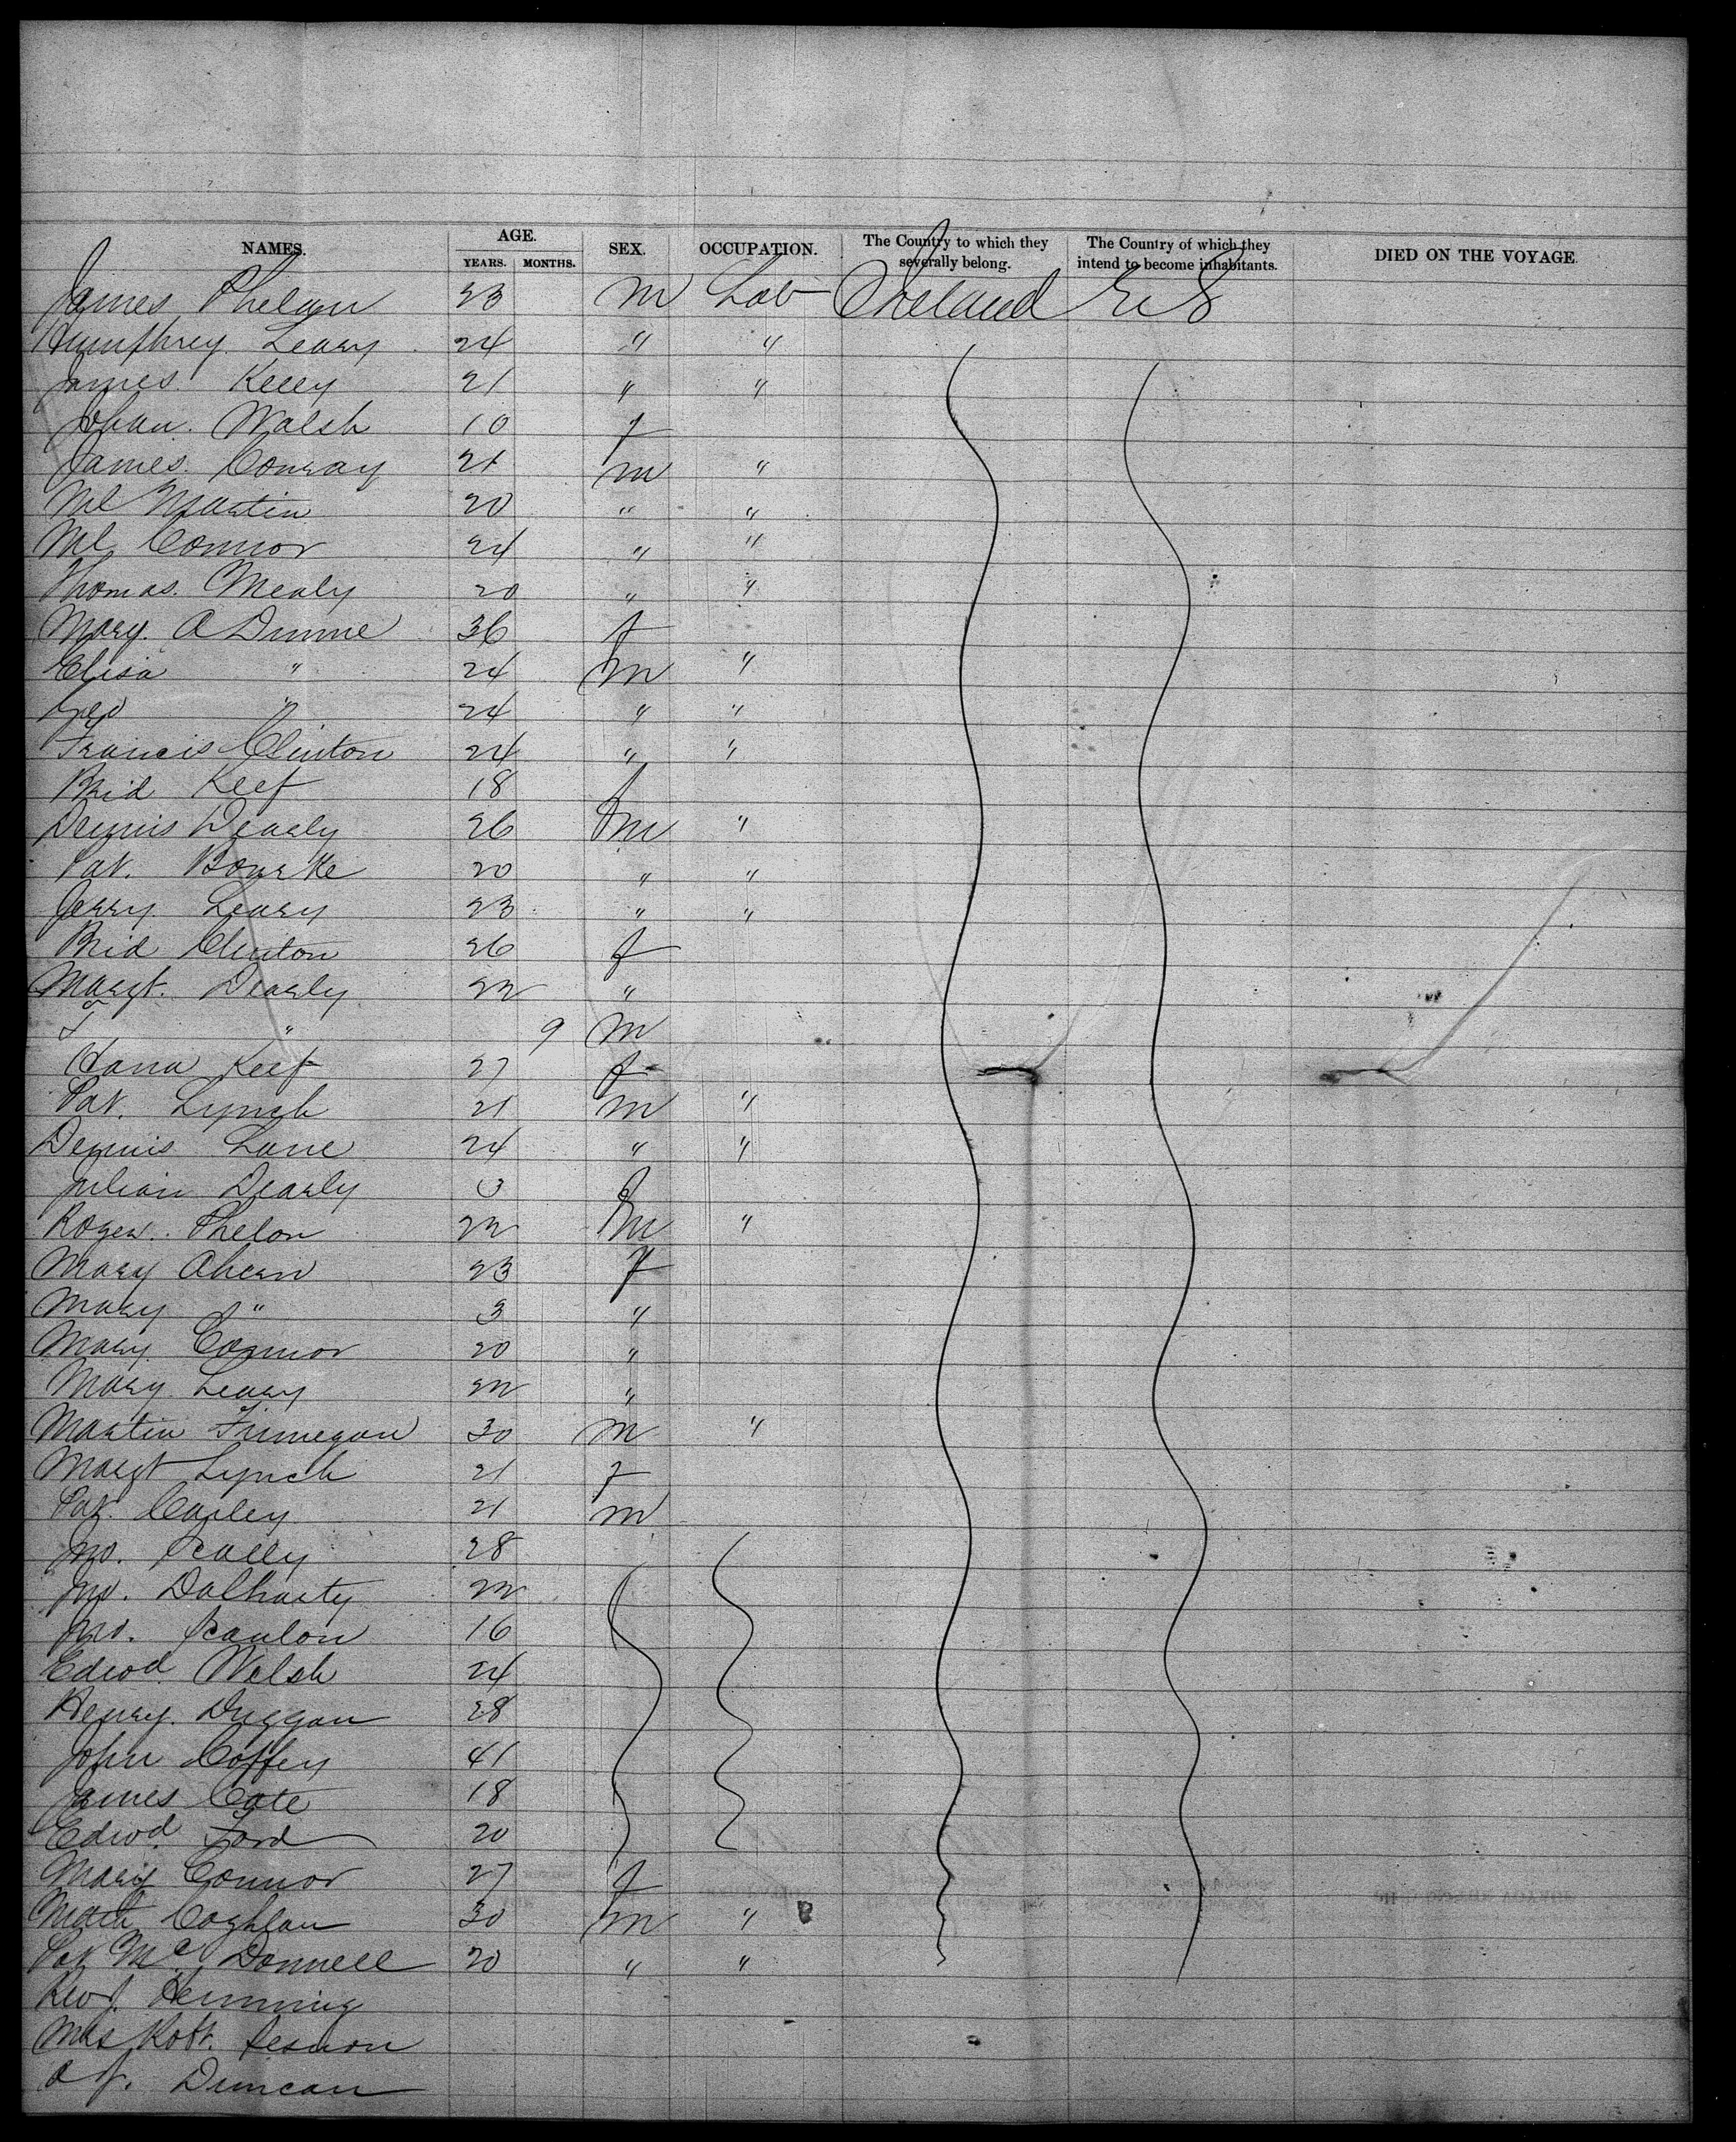 NAMES. AGE. SEX. OCCUPATION. The Country to which they severally belong. The Country of which they intend to become inhabitants. DIED ON THE VOYAGE.
YEARS. MONTHS.
James Phelan 23 m Lab Ireland U S
Humphrey Leary 24 " "
James Kelly 21 " "
Johan. Walsh 10 f
James Conray 21 m "
Ml Martin 20 " "
Ml Connor 24 " "
Thomas. Mealy 20 " "
Mary. A Dunne 36 f
Elisa " 24 m "
Geo " 24 " "
Francis Clinton 24 " "
Brid Keef 18 f
Dennis Dearly 26 m "
Pat. Bourke 20 " "
Jerry Leary 23 " "
Brid Clinton 26 f
Margt. Dearly 22 "
" 9 m
Hana Keef 27 f
Pat. Lynch 21 m "
Dennis Lane 24 " "
Julian Dearly 3 f
Roger. Phelon 22 m "
Mary Ahern 23 f
Mary " 3 "
Mary Connor 20 "
Mary Leary 22 "
Martin Finnegan 30 m "
Margt Lynch 21 f
Pat. Carley 21 m
Jno. Scally 28
Jno. Dalharty 22
Jno. Scanlon 16
Edwd Welsh 24
Henry. Duggan 28
John Coffey 41
James Cate 18
Edwd. Ford 20
Mary Connor 27 f
Matt Coghlan 30 m "
Pat Mc Donnell 20 " "
Hemming
Mrs Robt.
Duncan